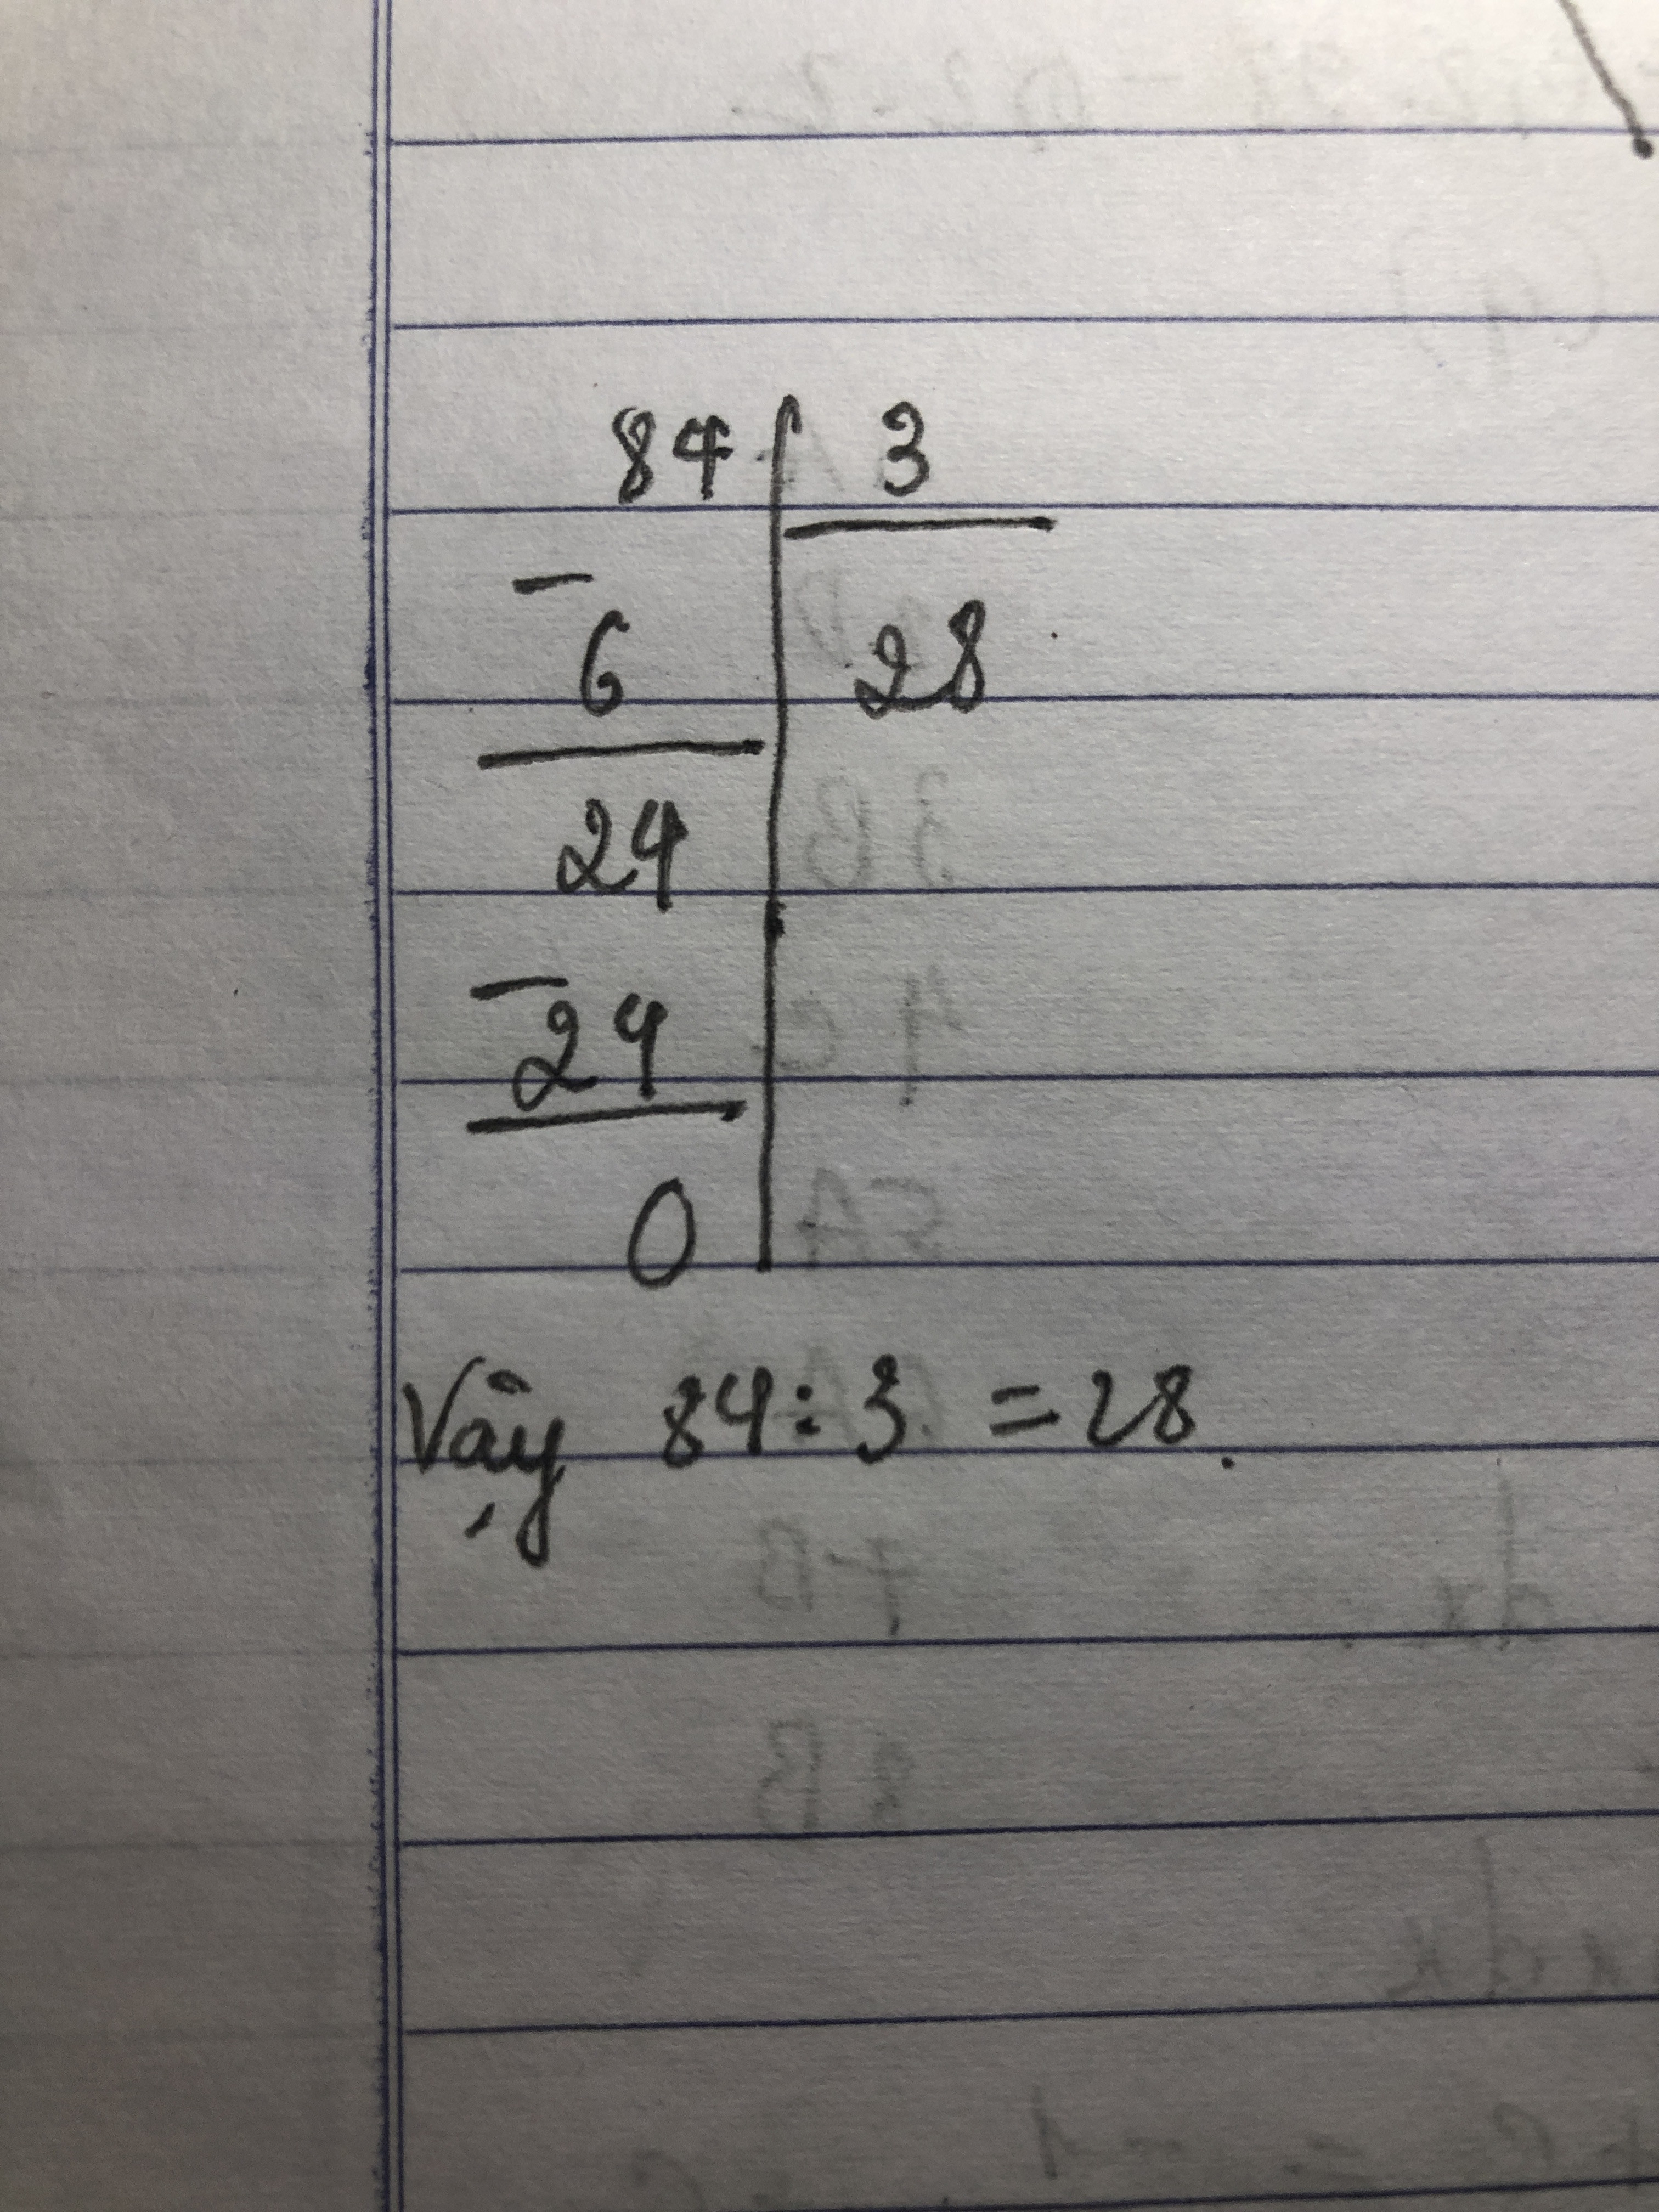 84 3
- 6 28
24
- 24
0
Vậy 84 : 3 = 28.